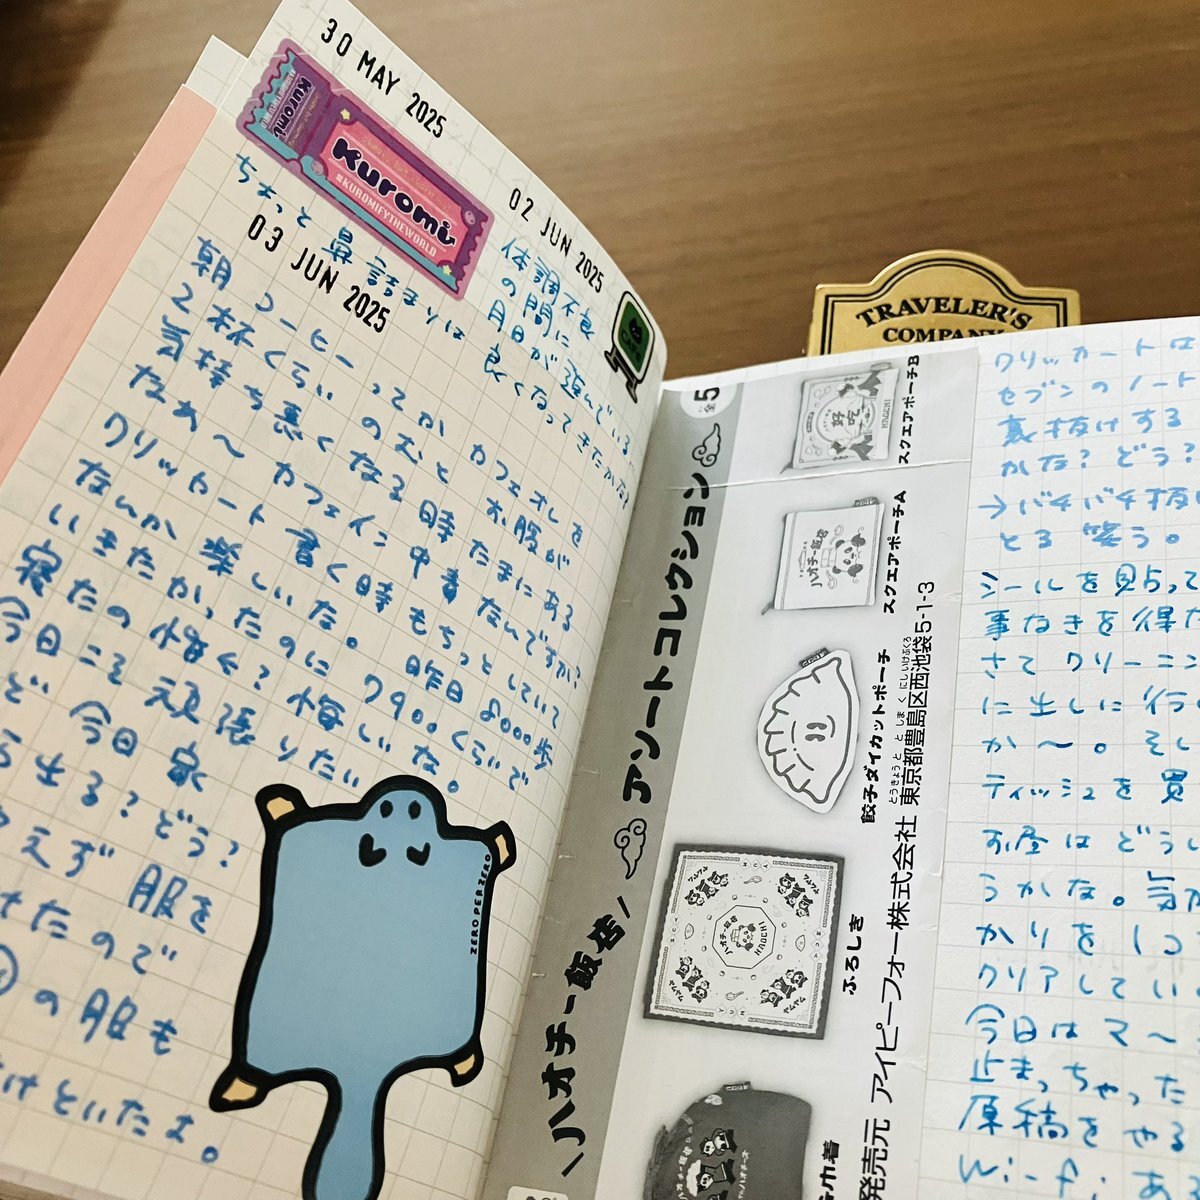 30 MAY 2025
Kuromi
Kuromi
#KUROMIFYTHEWORLD
ちょっと鼻詰まりは良くなってきたかな?
02 JUN 2025
体調不良
の間に
月日が進んでいる
03 JUN 2025
朝コーヒーってかカフェオレを
2杯くらいのむとお腹が
気持ち悪くなる時たまにある
なあ〜カフェイン中毒なんですか?
クリッカート書く時もちっとしていて
なんか楽しいな。昨日8000歩
いきたかったのに7900くらいで
寝たの悔しい
今日こそ頑張りたい
ど 今日家
生る?どう?
えず 服を
けたので
の服も
けといたよ。
ZEROPERZERO
TRAVELER'S
COMPANY
全5
ハオチー飯店 アソートコレクション
スクエアポーチB
好吃
HAOCHI
スクエアポーチA
ハオチー飯店
餃子ダイカットポーチ
ふろしき
ハオチー飯店
HAOCHI
巾着
発売元 アイピーフォー株式会社 東京都豊島区西池袋5-1-3
とうきょうと としまく にしいけぶくろ
クリッカートは
セブンのノート
裏抜けする
かな?どう?
→バチバチ抜
とる 笑う。
シールを貼って
事なきを得た
さて クリーニン
に出しに行
か〜。そし
ティッシュを買
お昼はどうし
うかな。
かりをしつ
クリアしてい
今日はマ〜
止まっちゃった
原稿をやる
Wi-Fi あ